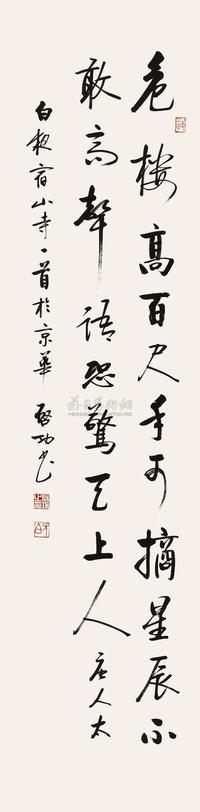 危楼高百尺手可摘星辰不
敢高聲語恐驚天上人唐人太
白夜宿山寺一首於京華啓功书